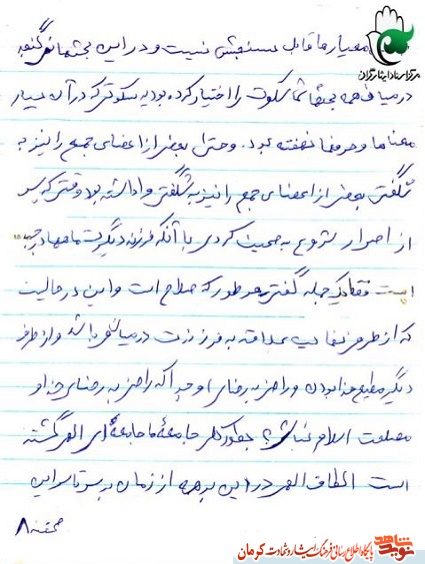 معیارها قابل سنجش نیست و در این بحثها نمی گنجد
مرکز اسناد ایثارگران
در میان همه بحثها شما سکوت را اختیار کرده بودید سکوتی که در آن بسیار
معناها و حرفها نهفته بود. و حتی بعضی از اعضای جمع را نیز به
شگفتی بعضی از اعضای جمع را نیز به شگفتی واداشته بود وقتی که پس
از اصرار شروع به صحبت کردی با آنکه فرزند دیگرت ماهها در جبهه
است فقط یک جمله گفتی هر طور که صلاح است و این در حالیست
که از طرفی نهایت علاقه به فرزندت در میان می باشد و از طرف
دیگر مطیع خدا بودن و راضی به رضای او چرا که راضی به رضای خدا و
مصلحت اسلام نباشی؟ چطور کل جامعه ما جامعه ای الهی گشته
است الطاف الهی در این برهه از زمان بر سرتاسر این
صفحه ۸
نوید شاهد
پایگاه اطلاع رسانی فرهنگ ایثار و شهادت کرمان